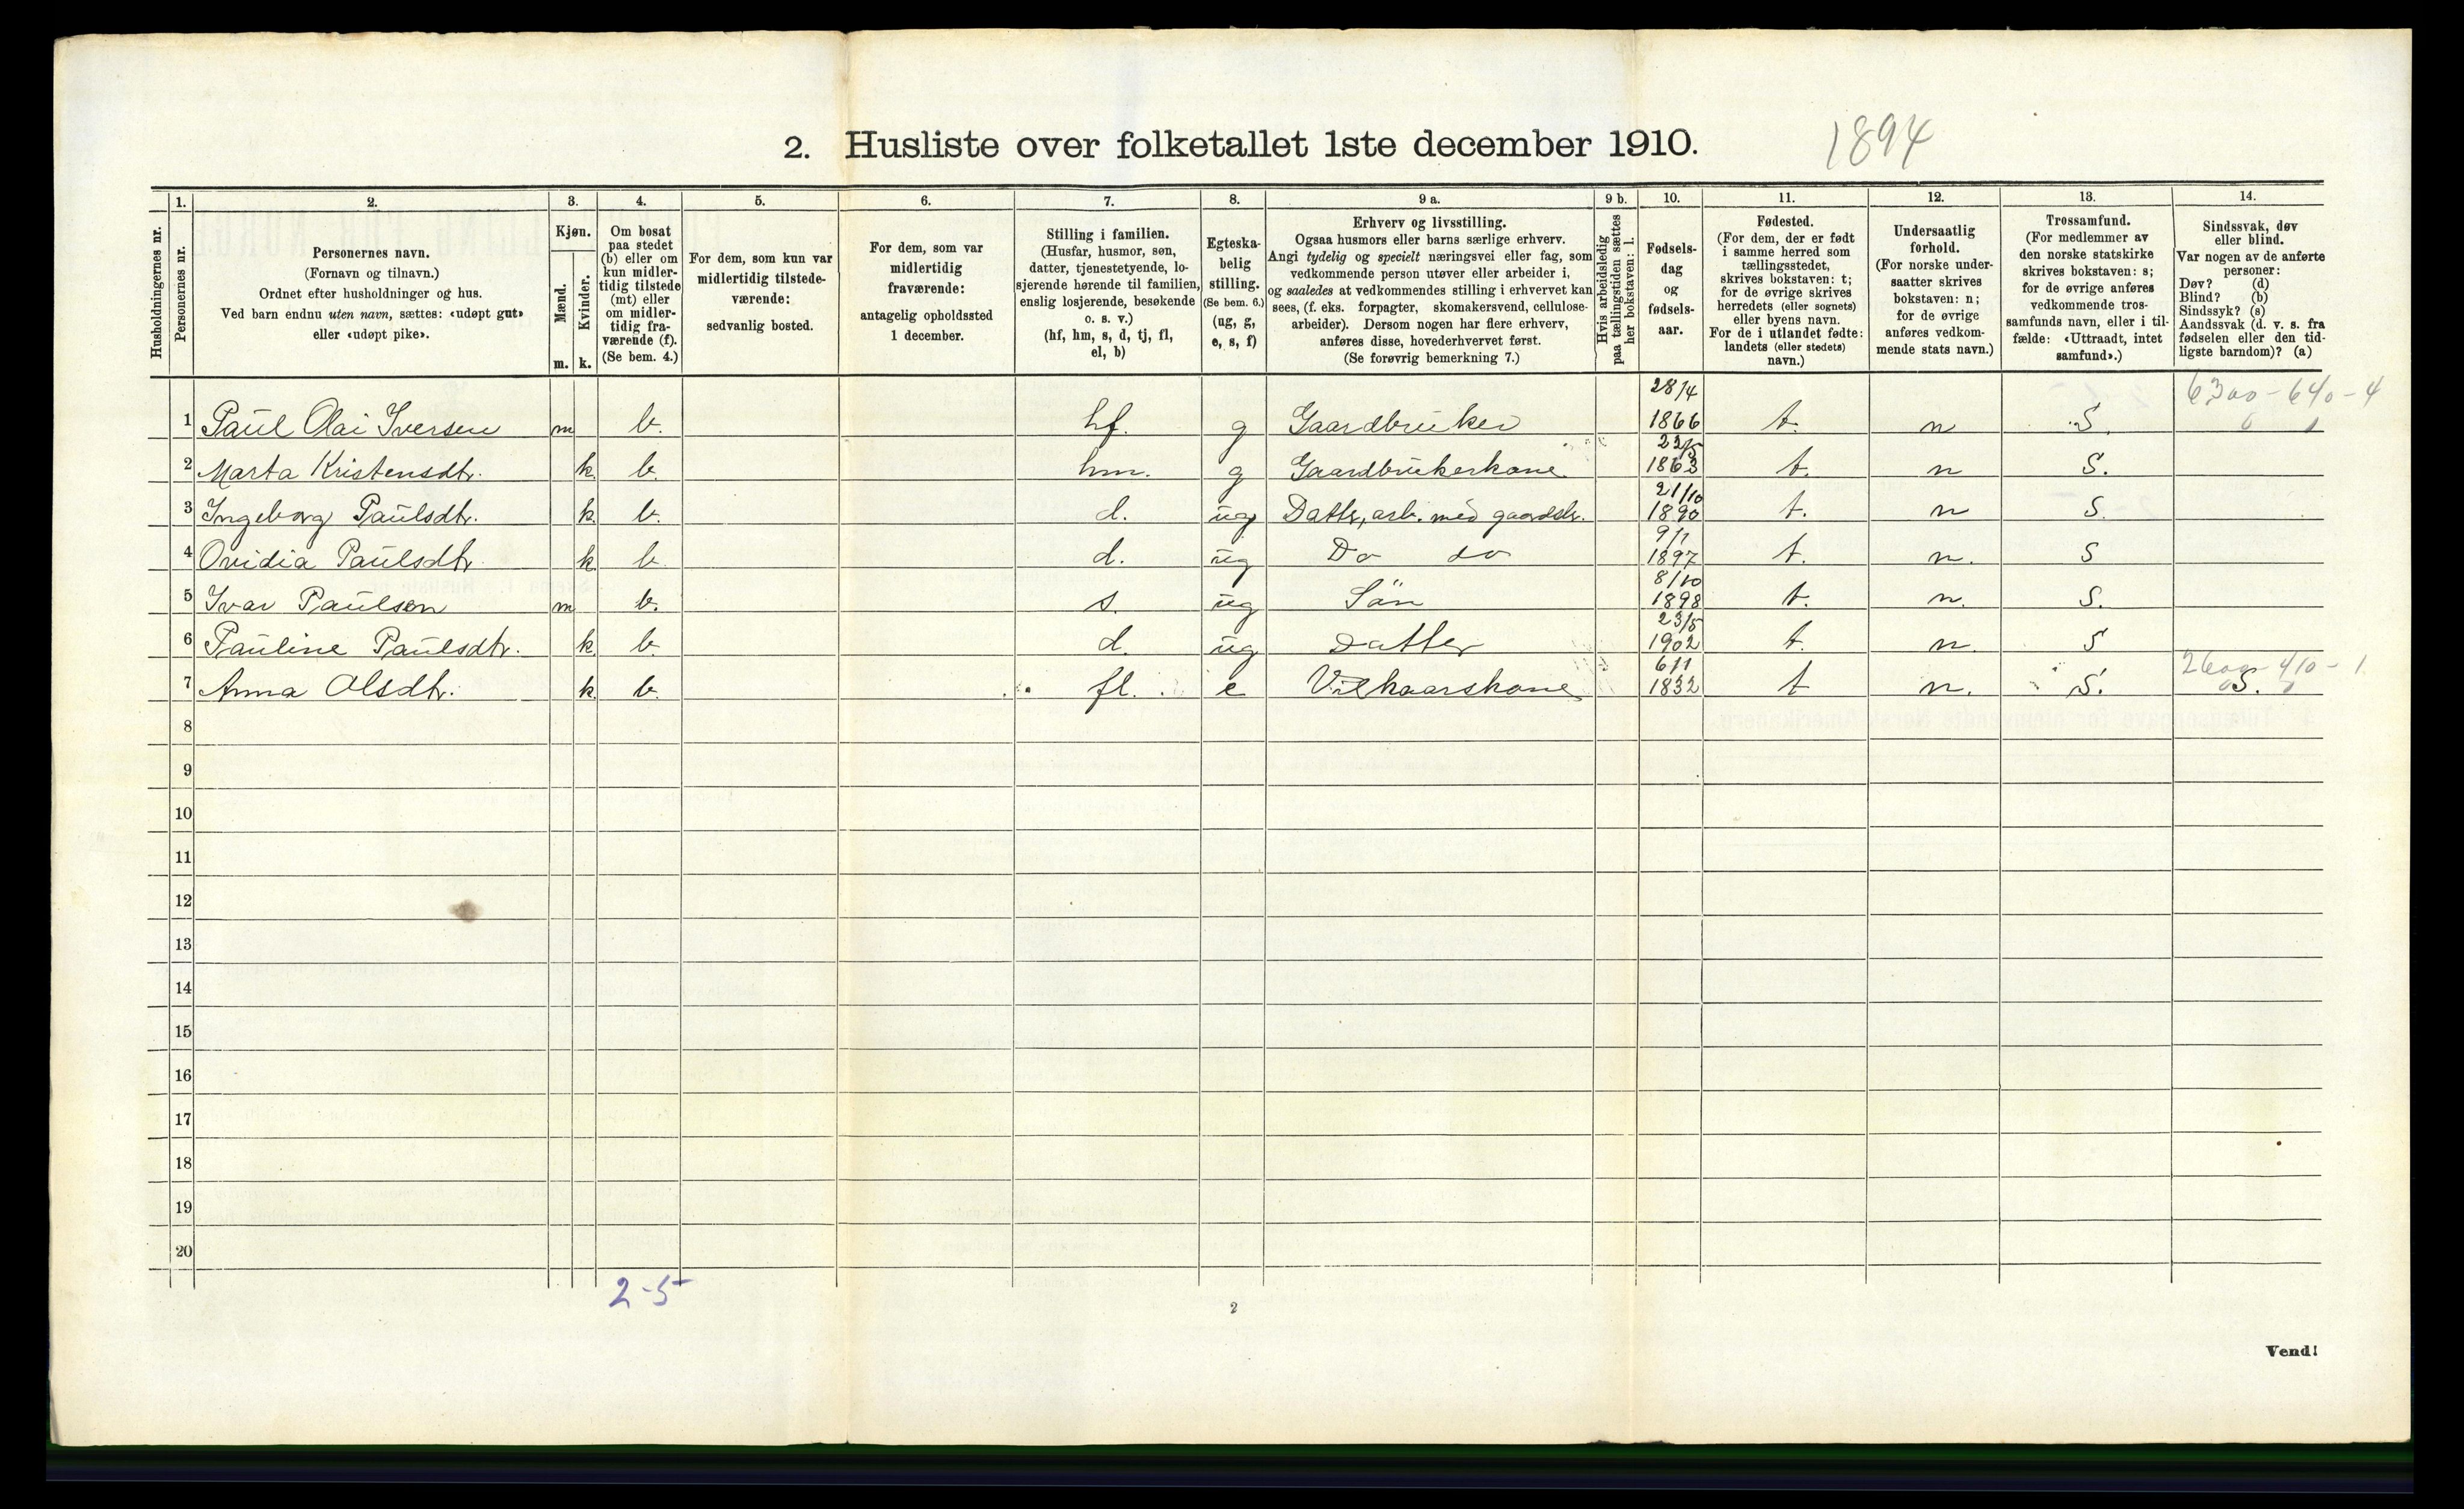 2. Husliste over folketallet 1ste december 1910. 1894
1. 2. 3. 4. 5. 6. 7. 8. 9 a. 9 b. 10. 11. 12. 13. 14.
Husholdningernes nr.
Personernes nr.
Personernes navn.
(Fornavn og tilnavn.)
Ordnet efter husholdninger og hus.
Ved barn endnu uten navn, sættes: «udøpt gut»
eller «udøpt pike».
Kjøn.
Mænd.
m.
Kvinder.
k.
Om bosat
paa stedet
(b) eller om
kun midler-
tidig tilstede
(mt) eller
om midler-
tidig fra-
værende (f).
(Se bem. 4.)
For dem, som kun var
midlertidig tilstede-
værende:
sedvanlig bosted.
For dem, som var
midlertidig
fraværende:
antagelig opholdssted
1 december.
Stilling i familien.
(Husfar, husmor, søn,
datter, tjenestetyende, lo-
sjerende hørende til familien,
enslig losjerende, besøkende
o. s. v.)
(hf, hm, s, d, tj, fl,
el, b)
Egteska-
belig
stilling.
(Se bem. 6.)
(ug, g,
e, s, f)
Erhverv og livsstilling.
Ogsaa husmors eller barns særlige erhverv.
Angi tydelig og specielt næringsvei eller fag, som
vedkommende person utøver eller arbeider i,
og saaledes at vedkommendes stilling i erhvervet kan
sees, (f. eks. forpagter, skomakersvend, cellulose-
arbeider). Dersom nogen har flere erhverv,
anføres disse, hovederhvervet først.
(Se forøvrig bemerkning 7.)
Hvis arbeidsledig
paa tællingstiden sættes
her bokstaven: l.
Fødsels-
dag
og
fødsels-
aar.
Fødested.
(For dem, der er født
i samme herred som
tællingsstedet,
skrives bokstaven: t;
for de øvrige skrives
herredets (eller sognets)
eller byens navn.
For de i utlandet fødte:
landets (eller stedets)
navn.)
Undersaatlig
forhold.
(For norske under-
saatter skrives
bokstaven: n;
for de øvrige
anføres vedkom-
mende stats navn.)
Trossamfund.
(For medlemmer av
den norske statskirke
skrives bokstaven: s;
for de øvrige anføres
vedkommende tros-
samfunds navn, eller i til-
fælde: «Uttraadt, intet
samfund».)
Sindssvak, døv
eller blind.
Var nogen av de anførte
personer:
Døv? (d)
Blind? (b)
Sindssyk? (s)
Aandssvak (d. v. s. fra
fødselen eller den tid-
ligste barndom)? (a)
1 Paul Olai Iversen m b. hf. g Gaardbruker 28/4 1866 t. n S. 6300-640-4
2 Marta Kristensdtr. k b. hm. g Gaardbrukerkone 1863 t. n S.
3 Ingeborg Paulsdtr. k. b. d. ug Datter, arb. med gaardsbr. 21/10 1890 t. n S.
4 Ovidia Paulsdtr. k b. d. ug Do do 9/1 1897 t. n. S
5 Ivar Paulsen m b. s. ug Sön 8/10 1898 t. n. S.
6 Pauline Paulsdtr. k. b. d. ug Datter 23/5 1902 t. n. S
7 Anna Olsdtr. k. b. fl. e Vilkaarskone 6/1 1832 t n. S. S.
8
9
10
11
12
13
14
15
16
17
18
19
20
2-5
2
Vend!